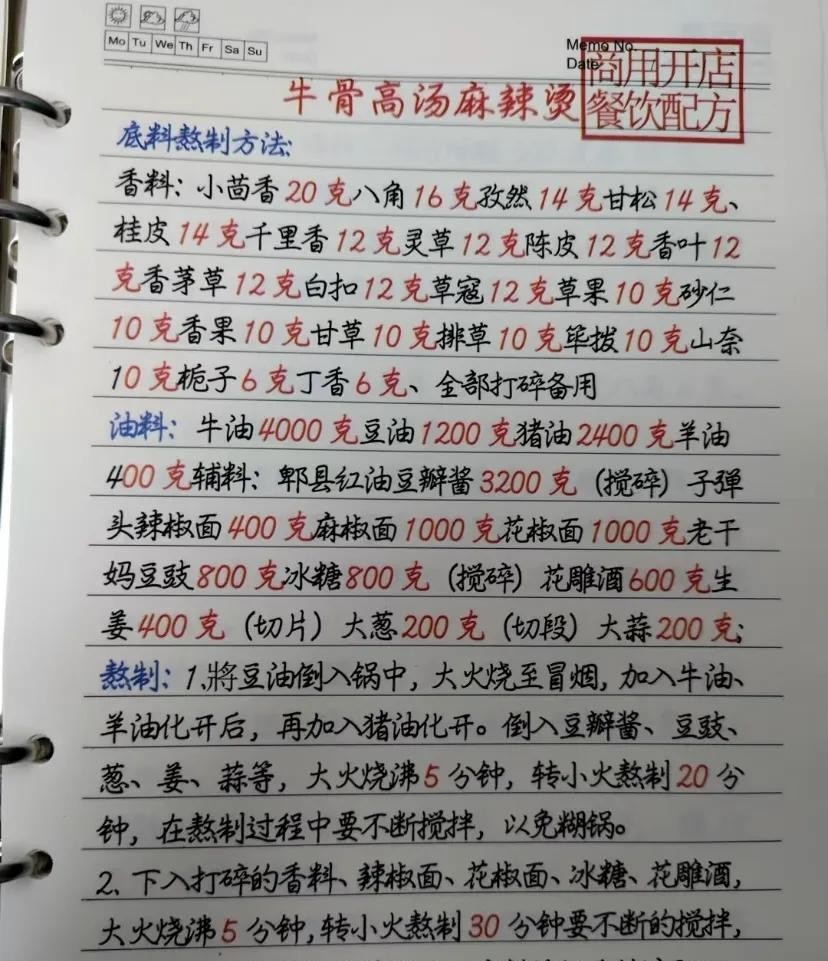 Mo Tu We Th Fr Sa Su
Memo No.
Date
商用开店
餐饮配方
牛骨高汤麻辣烫
底料熬制方法:
香料：小茴香20克八角16克孜然14克甘松14克、
桂皮14克千里香12克灵草12克陈皮12克香叶12
克香茅草12克白扣12克草寇12克草果10克砂仁
10克香果10克甘草10克排草10克筚拨10克山奈
10克栀子6克丁香6克、全部打碎备用
油料：牛油4000克豆油1200克猪油2400克羊油
400克辅料：郫县红油豆瓣酱3200克（搅碎）子弹
头辣椒面400克麻椒面1000克花椒面1000克老干
妈豆豉800克冰糖800克（搅碎）花雕酒600克生
姜400克（切片）大葱200克（切段）大蒜200克;
熬制：1、將豆油倒入锅中，大火烧至冒烟，加入牛油、
羊油化开后，再加入猪油化开。倒入豆瓣酱、豆豉、
葱、姜、蒜等，大火烧沸5分钟，转小火熬制20分
钟，在熬制过程中要不断搅拌，以免糊锅。
2、下入打碎的香料、辣椒面、花椒面、冰糖、花雕酒，
大火烧沸5分钟,转小火熬制30分钟要不断的搅拌，